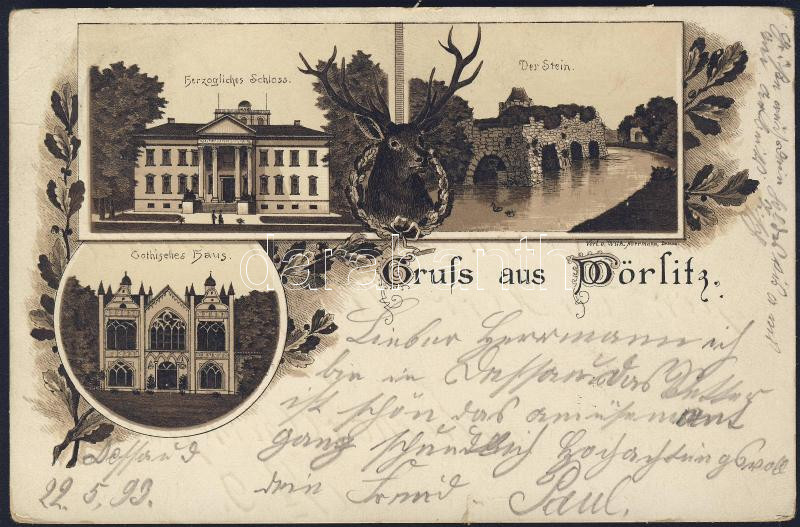 Herzogliches Schloss.
Der Stein.
Gothisches Haus.
Verl. v. Wilh. Herrmann, Dessau.
Gruß aus Wörlitz.
Lieber Herrmann ich
bin in Dessau das Wetter
ist schön das amüsemant
ganz Hochachtungsvoll
dein Freund Paul.
Dessaud
22.5.93.
darabanth